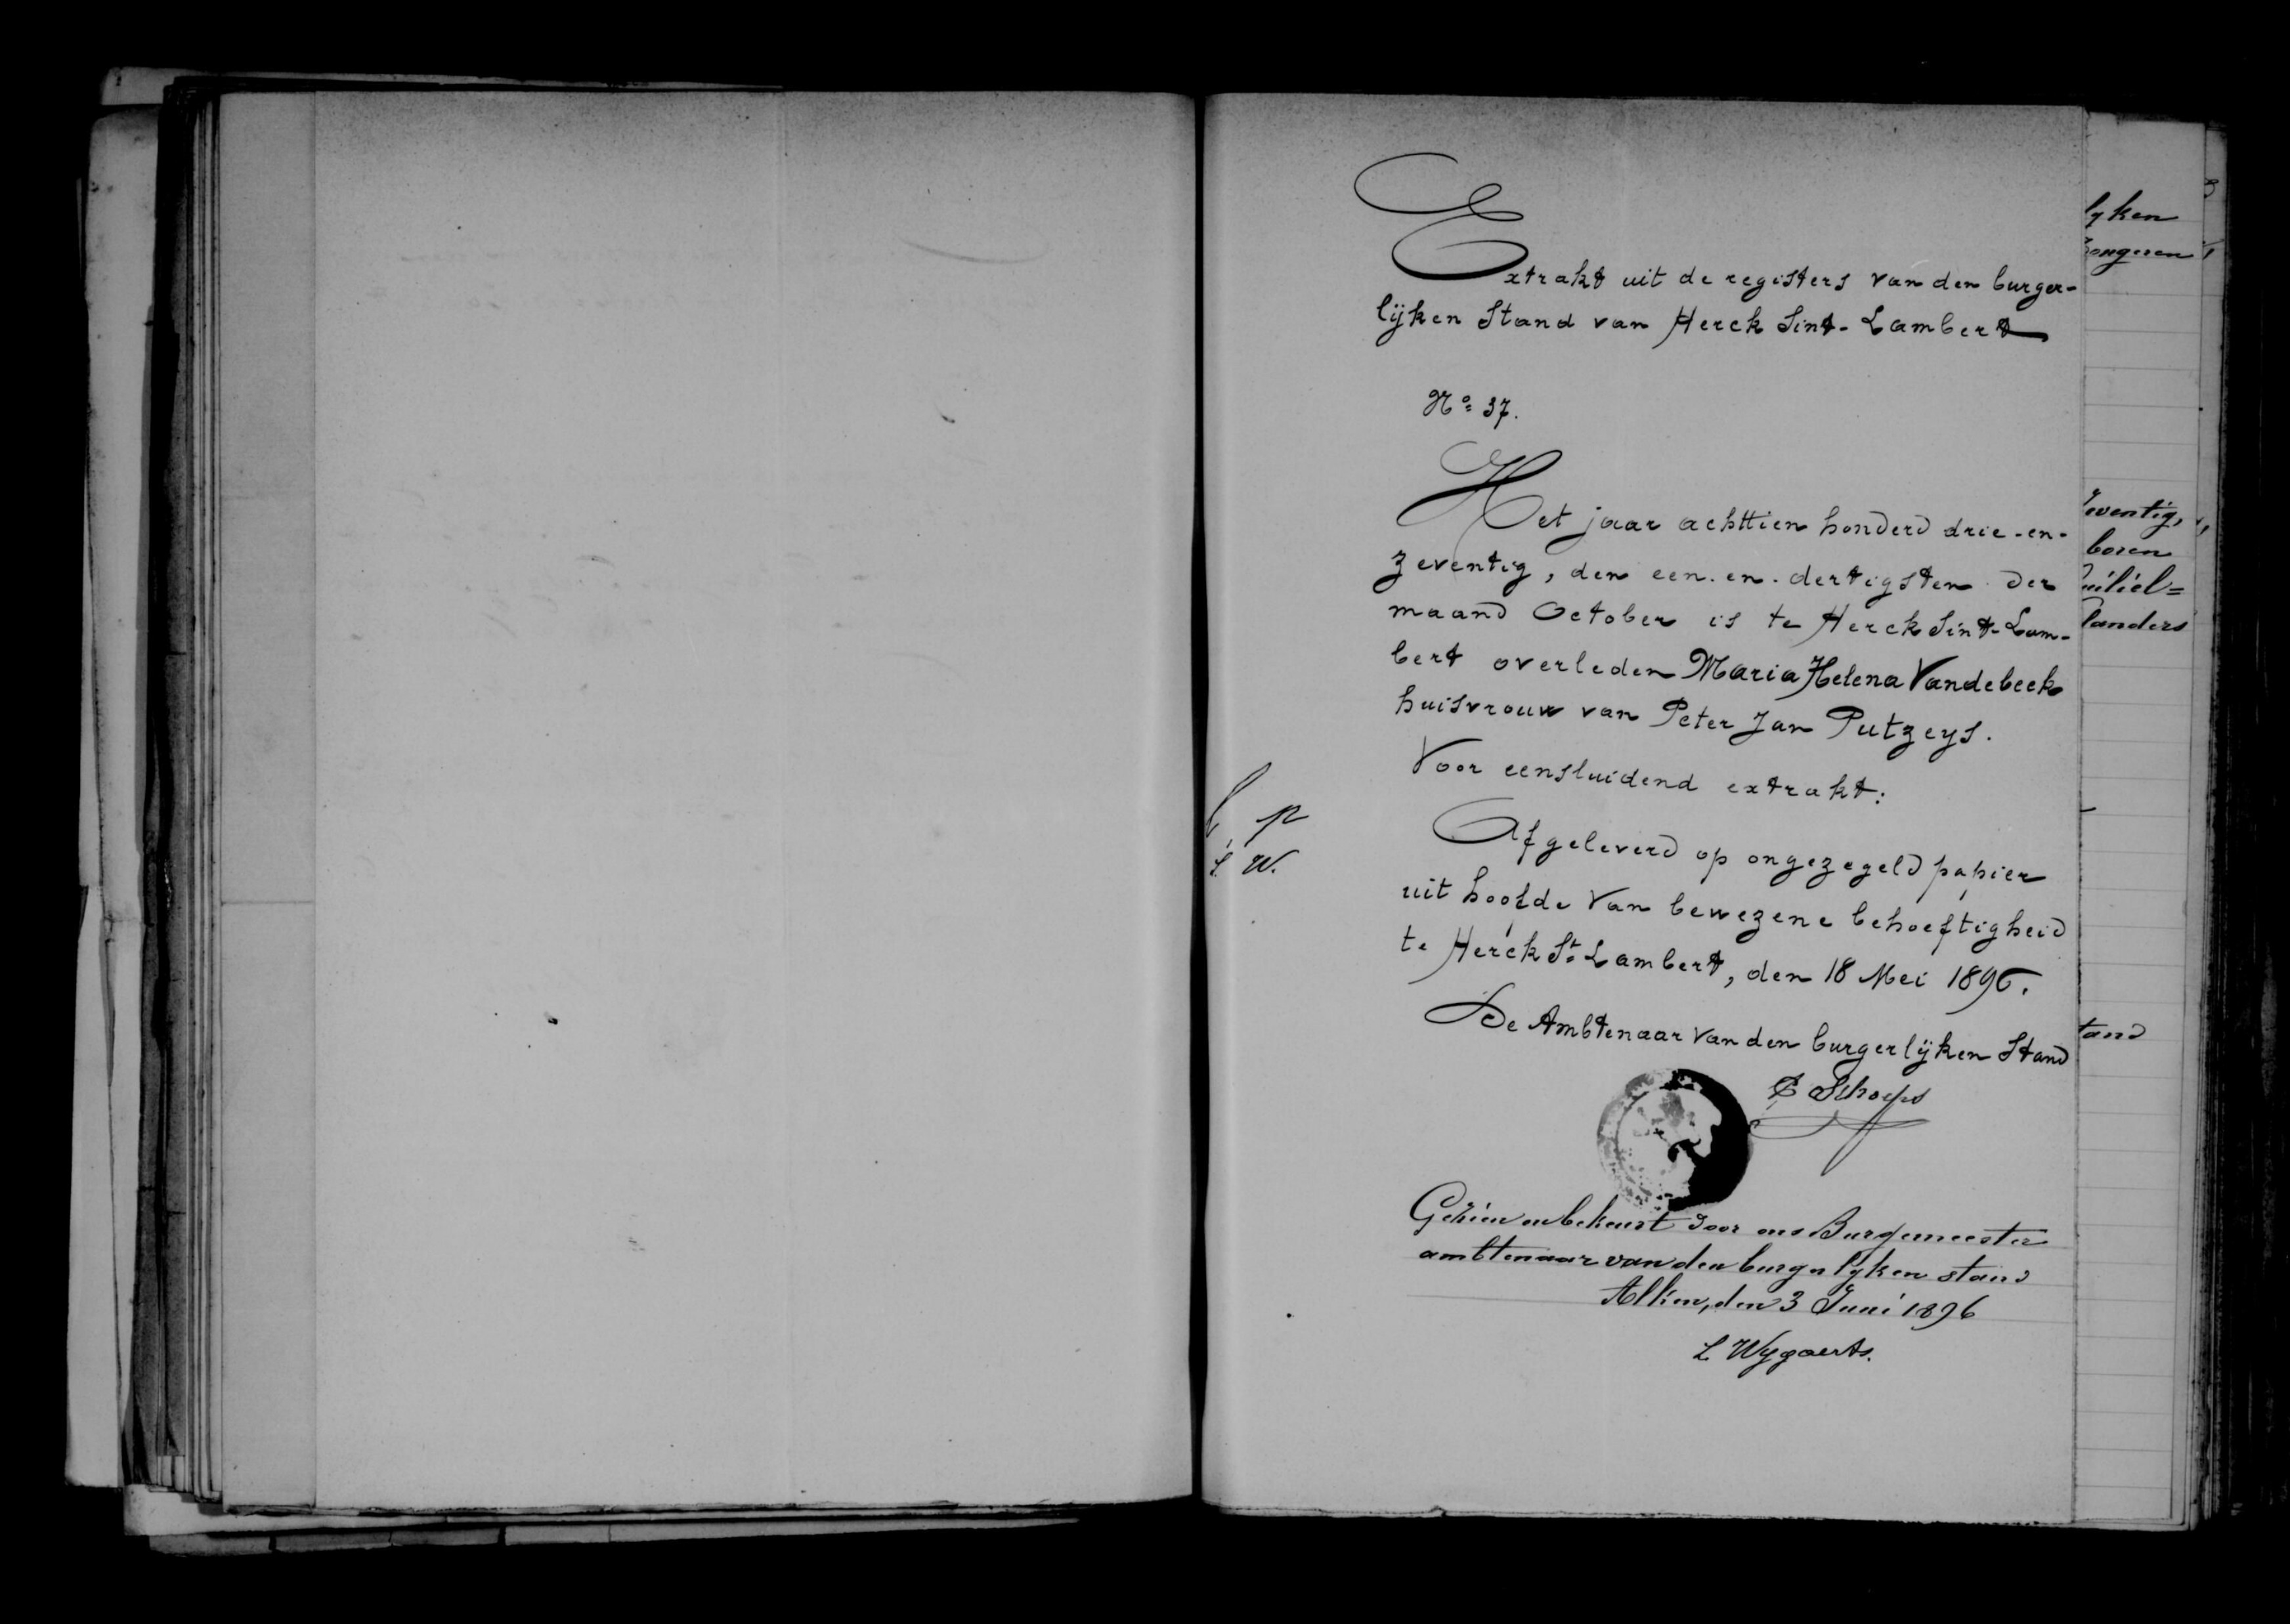 Extrakt uit de registers van den burger-
lijken Stand van Herck Sint-Lambert
No 37.
Het jaar achttien honderd drie-en-
zeventig, den een-en-dertigsten der
maand October is te Herck Sint-Lam-
bert overleden Maria Helena Vandebeek
huisvrouw van Peter Jan Putzeys.
Voor eensluidend extrakt:
Afgeleverd op ongezegeld papier
uit hoofde van bewezene behoeftigheid
te Herck St Lambert, den 18 Mei 1896.
De Ambtenaar van den burgerlijken Stand
Schoefs
Gezien en bekeurt door ons Burgemeester
ambtenaar van den burgelyken stand
Alken, den 3 Juni 1896
L Wygaerts.
p
L W.
lyken
ongeren
eventig,
boren
landers
tand